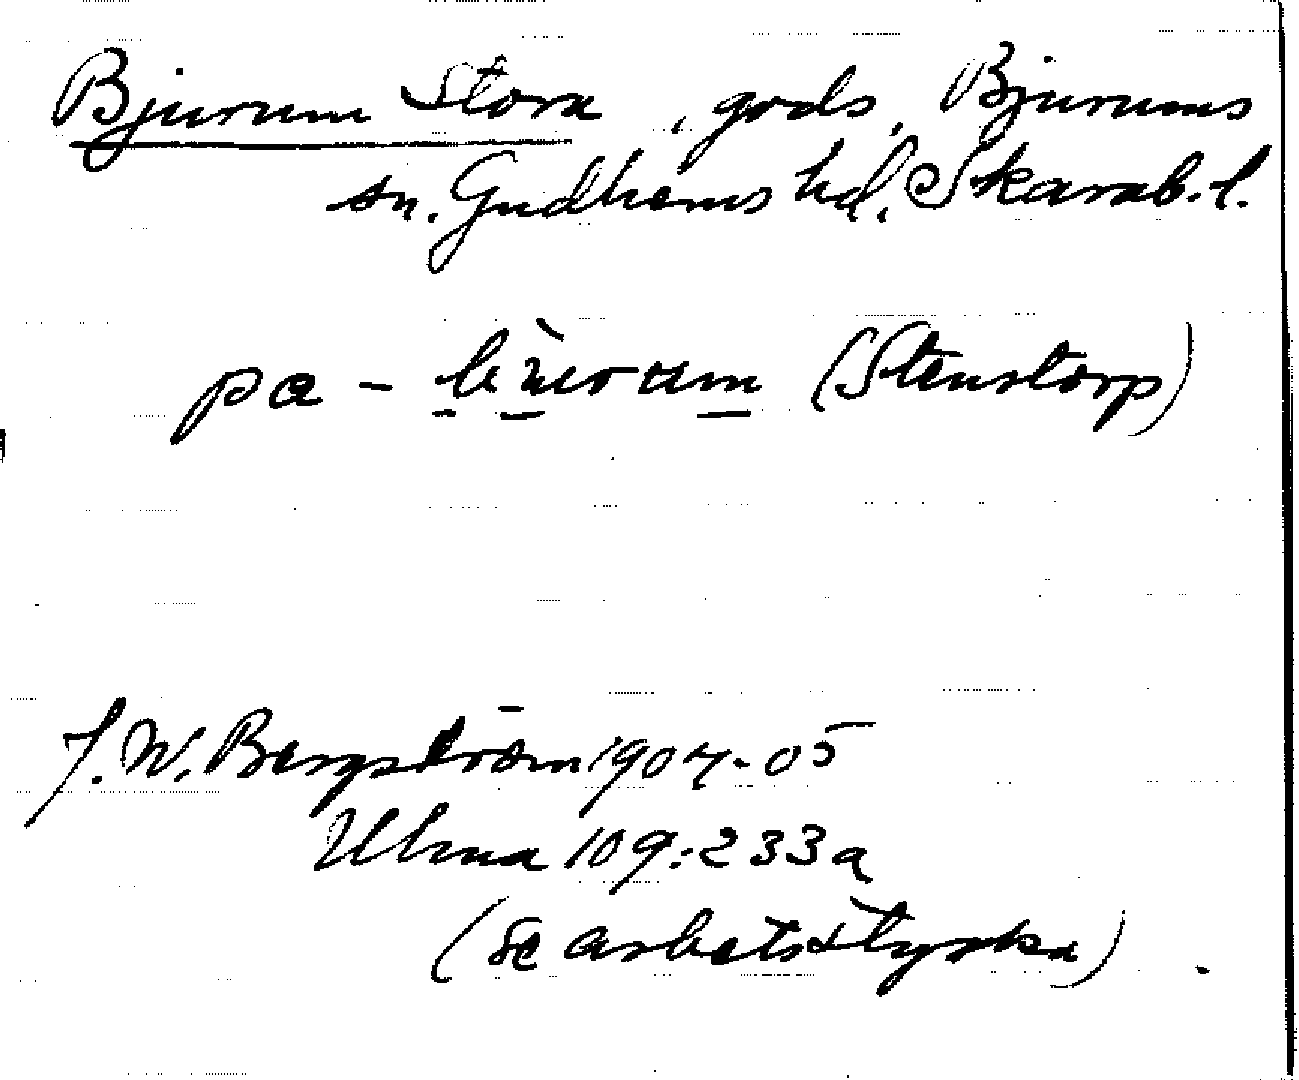 Bjurum Stora, gods, Bjurums
sn. Gudhems hd, Skarab. l.
pa - (Stenstorp)
J. W. Bergström 1904-05
Ulma 109:233a
(se arbetsstyrka)